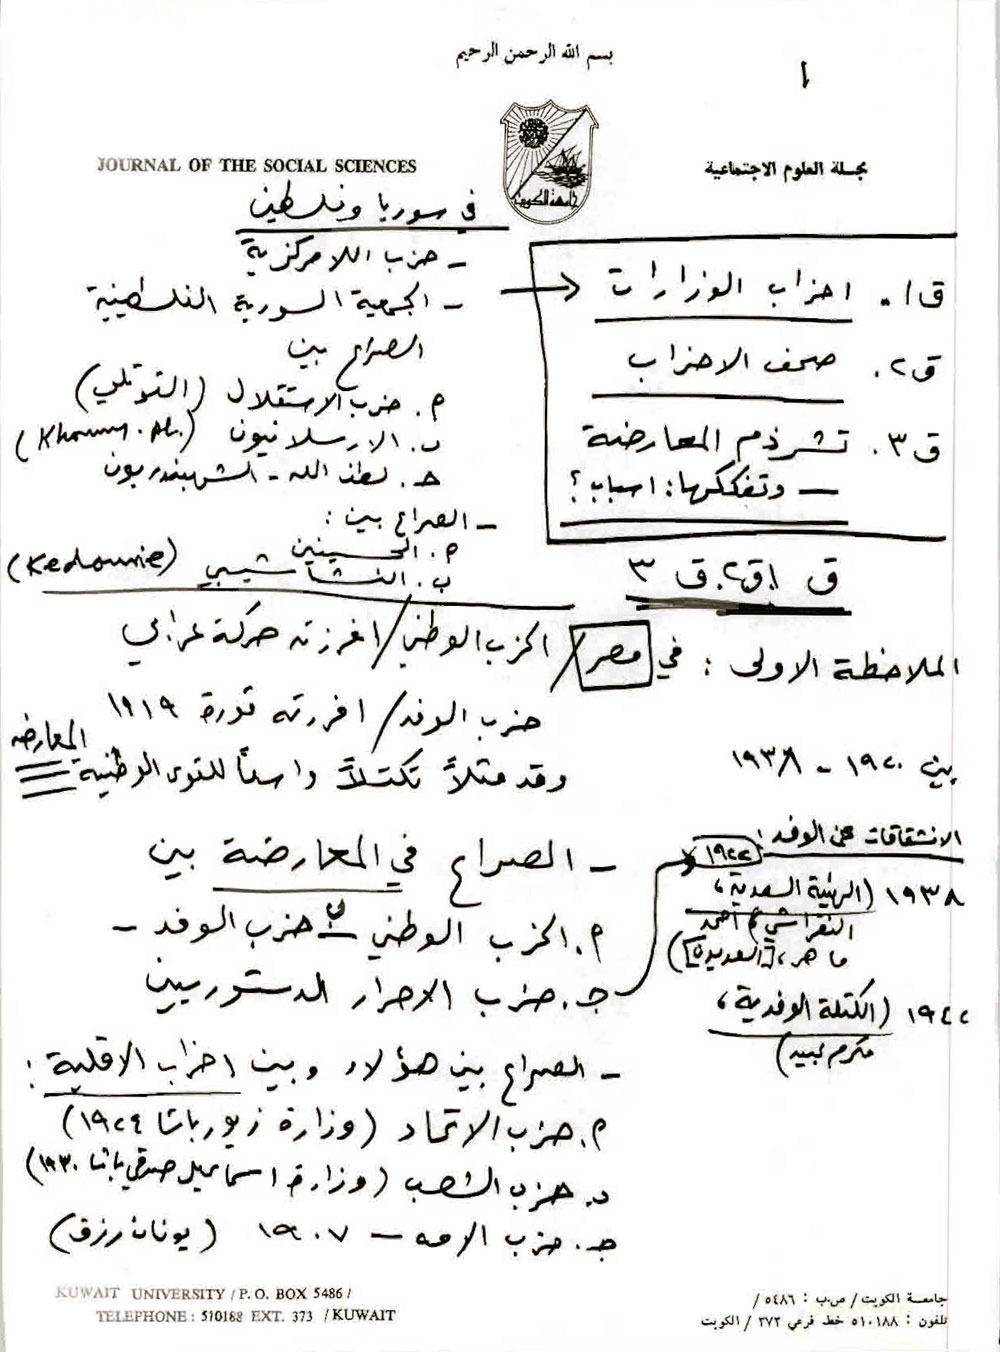 بسم الله الرحمن الرحيم
١
JOURNAL OF THE SOCIAL SCIENCES
مجلة العلوم الاجتماعية
جامعة الكويت
ق١. احزاب الوزارات
ق٢. صحف الاحزاب
ق٣. تشرذم المعارضة
— وتفككها: اسباب؟
في سوريا وفلسطين
- حزب اللامركزية
- الجمعية السورية الفلسطينية
الصراع بين
م. حزب الاستقلال (القوتلي)
ب. الارسلانيون (Khoury.
حـ. لطف الله - الشهبندريون
- الصراع بين:
م. الحسينين
ب. النشاشيبي (Kedourie)
ق ١، ق٢، ق ٣
الملاحظة الاولى: في مصر / الحزب الوطني / افرزته حركة عرابي
حزب الوفد / افرزته ثورة ١٩١٩
بين ١٩٢٠ - ١٩٣٨
وقد مثلاً تكتلاً واسعاً للقوى الوطنية المعارضة
الانشقاقات عن الوفد:
١٩٢٢
١٩٣٨ (الهيئة السعدية،
النقراشي، احمد
ماهر،
١٩٤٢ (الكتلة الوفدية،
مكرم عبيد)
- الصراع في المعارضة بين
م. الحزب الوطني حزب الوفد -
جـ. حزب الاحرار الدستوريين
- الصراع بين هؤلاء وبين احزاب الاقلية:
م. حزب الاتحاد (وزارة زيور باشا ١٩٢٤)
د. حزب الشعب (وزارة اسماعيل صدقي باشا ١٩٣٠)
جـ. حزب الامه — ١٩٠٧ (يونان رزق)
KUWAIT UNIVERSITY / P. O. BOX 5486 /
TELEPHONE : 510188 EXT. 373 / KUWAIT
جامعة الكويت / ص.ب : ٥٤٨٦ /
تلفون : ٥١٠١٨٨ خط فرعي ٣٧٣ / الكويت